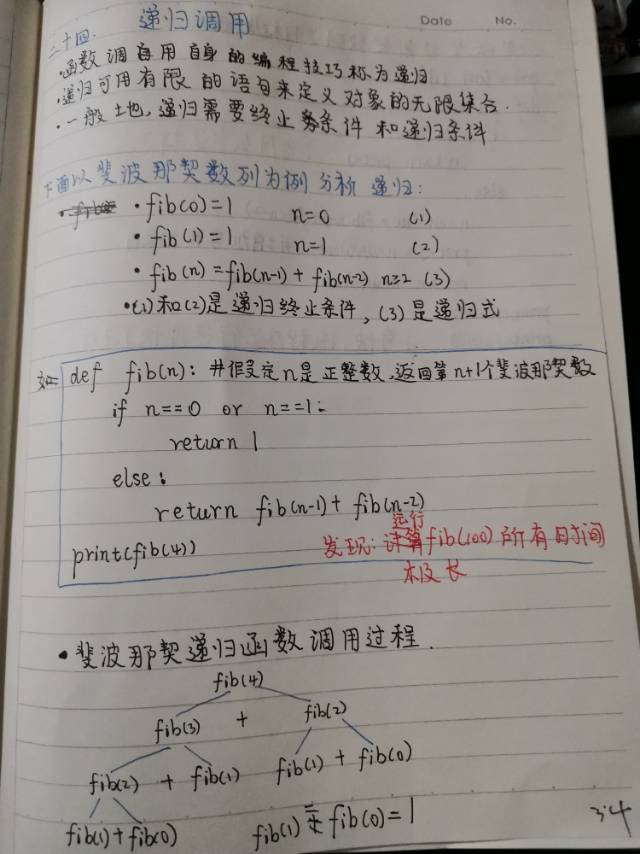 递归调用
Date No.
二十四.
·函数调自用自身的编程技巧称为递归
·递归可用有限的语句来定义对象的无限集合.
·一般地,递归需要终止条件和递归条件
下面以斐波那契数列为例分析递归:
·fib(0)=1 n=0 (1)
·fib(1)=1 n=1 (2)
·fib(n)=fib(n-1)+fib(n-2) n≥2 (3)
·(1)和(2)是递归终止条件,(3)是递归式
如: def fib(n): #假设定n是正整数,返回第n+1个斐波那契数
if n==0 or n==1:
return 1
else:
return fib(n-1)+fib(n-2)
print(fib(4))
发现:运行fib(100)所有时间
极长
·斐波那契递归函数调用过程.
fib(4)
fib(3) + fib(2)
fib(2) + fib(1) fib(1) + fib(0)
fib(1)+fib(0) fib(1)=fib(0)=1
34